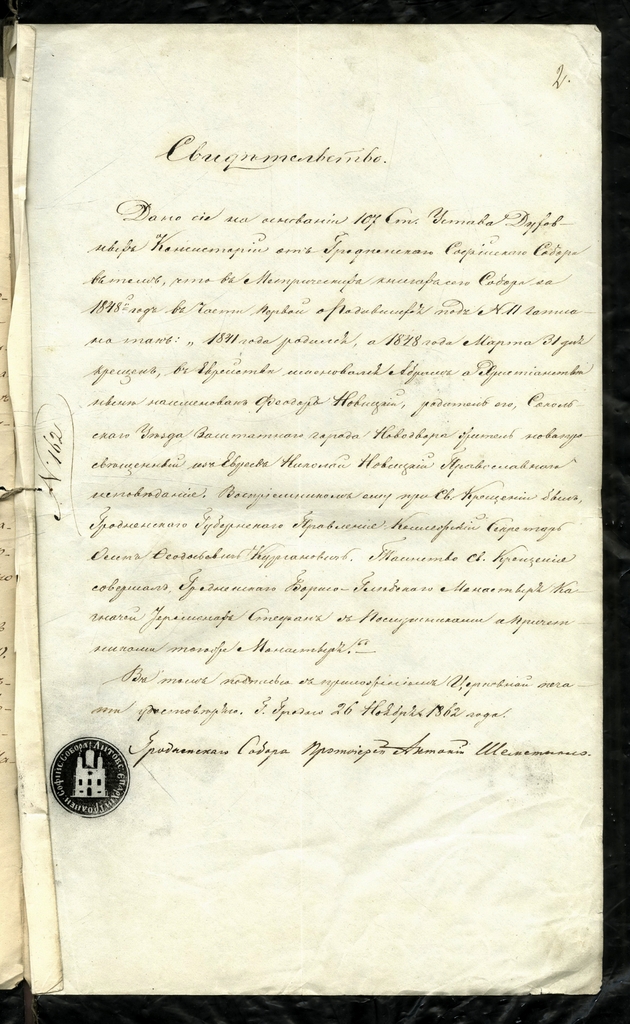 2.
Свидѣтельство.
Дано сіе на основаніи 107 Ст. Устава Духов-
ныхъ Консисторіи отъ Гродненскаго Софійскаго Собора
въ томъ, что въ Метрическихъ книгахъ сего Собора за
1848й годъ въ части первой о родившихся подъ N. 11 записа-
но такъ: „ 1841 года родился, а 1848 года Марта 31 дня
крещенъ, въ Еврействѣ именовался Абрамъ а въ Христіанствѣ
нынѣ наименованъ Ѳеодоръ Новицкій, родитель его, Соколь-
скаго Уѣзда Заштатнаго города Новодвора житель новопро
свѣщенный изъ Евреевъ Николай Новицкій Православнаго
исповѣданія. Воспріемникомъ ему при Св. Крещеніи былъ,
Гродненскаго Губернскаго Правленія Коллежскій Секретарь
Осипъ Ѳеодосьевичъ Кургановичъ. Таинство Св. Крещенія
совершалъ, Гродненскаго Борисо-Глѣбскаго Монастыря Ка-
значей Іеромонахъ Стефанъ съ Послушниками и Причет-
никами тогоже Монастыря."
Въ томъ подписью съ приложеніемъ Церковной печа-
ти удостовѣряю. Г. Гродно 26 Ноября 1862 года.
Гродненскаго Собора Протоіерей Антоній
N. 162